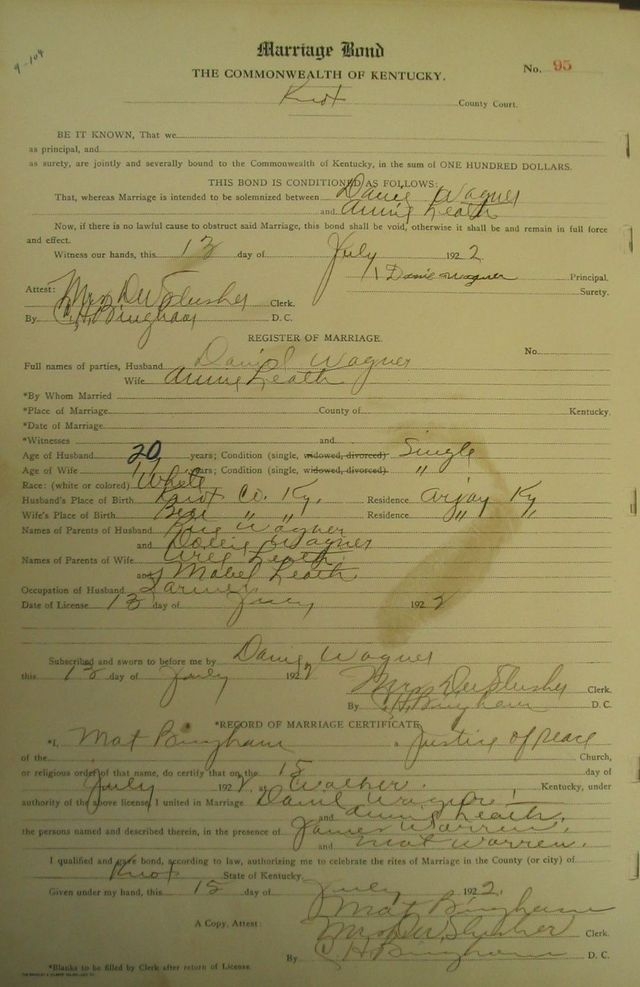 Marriage Bond
THE COMMONWEALTH OF KENTUCKY.
No. 95
Knox County Court.
BE IT KNOWN, That we
as principal, and
as surety, are jointly and severally bound to the Commonwealth of Kentucky, in the sum of ONE HUNDRED DOLLARS.
THIS BOND IS CONDITIONED AS FOLLOWS:
That, whereas Marriage is intended to be solemnized between Daniel Wagner
and Annie Leath
Now, if there is no lawful cause to obstruct said Marriage, this bond shall be void, otherwise it shall be and remain in full force
and effect.
Witness our hands, this 13 day of July 1922.
Daniel Wagner Principal.
Surety.
Attest: Mrs D W Slusher Clerk.
By C. H. Bingham D. C.
REGISTER OF MARRIAGE.
No.
Full names of parties, Husband Daniel Wagner
Wife Annie Leath
*By Whom Married
*Place of Marriage County of Kentucky.
*Date of Marriage
*Witnesses and
Age of Husband 20 years; Condition (single, widowed, divorced) Single
Age of Wife years; Condition (single, widowed, divorced) "
Race: (white or colored) White
Husband's Place of Birth Knox Co. Ky. Residence Arjay Ky
Wife's Place of Birth Bell " " Residence " "
Names of Parents of Husband Wagner
and Dollie Wagner
Names of Parents of Wife Leath
and Mabel Leath
Occupation of Husband Farmer
Date of License 13 day of July 1922
Subscribed and sworn to before me by Daniel Wagner
this 13 day of July 1922
Mrs D W Slusher Clerk.
By C. H. Bingham D. C.
*RECORD OF MARRIAGE CERTIFICATE
*I, Mat Bingham a Justice of Peace
of the Church,
or religious order of that name, do certify that on the 15 day of
July 1922, at Walker. Kentucky, under
authority of the above license, I united in Marriage Daniel
and Annie Leath.
the persons named and described therein, in the presence of James Warren,
and Mat Warren.
I qualified and gave bond, according to law, authorizing me to celebrate the rites of Marriage in the County (or city) of
Knox State of Kentucky.
Given under my hand, this 15 day of July 1922.
Mat Bingham
A Copy, Attest: Mrs D W Slusher Clerk.
By C. H. Bingham D. C.
*Blanks to be filled by Clerk after return of License